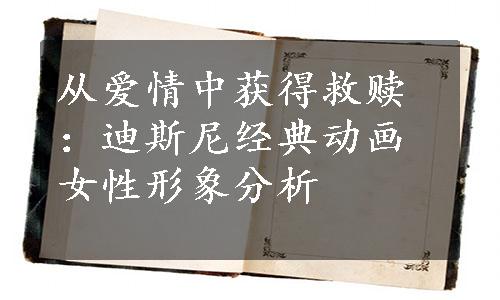 从爱情中获得救赎
：迪斯尼经典动画
女性形象分析